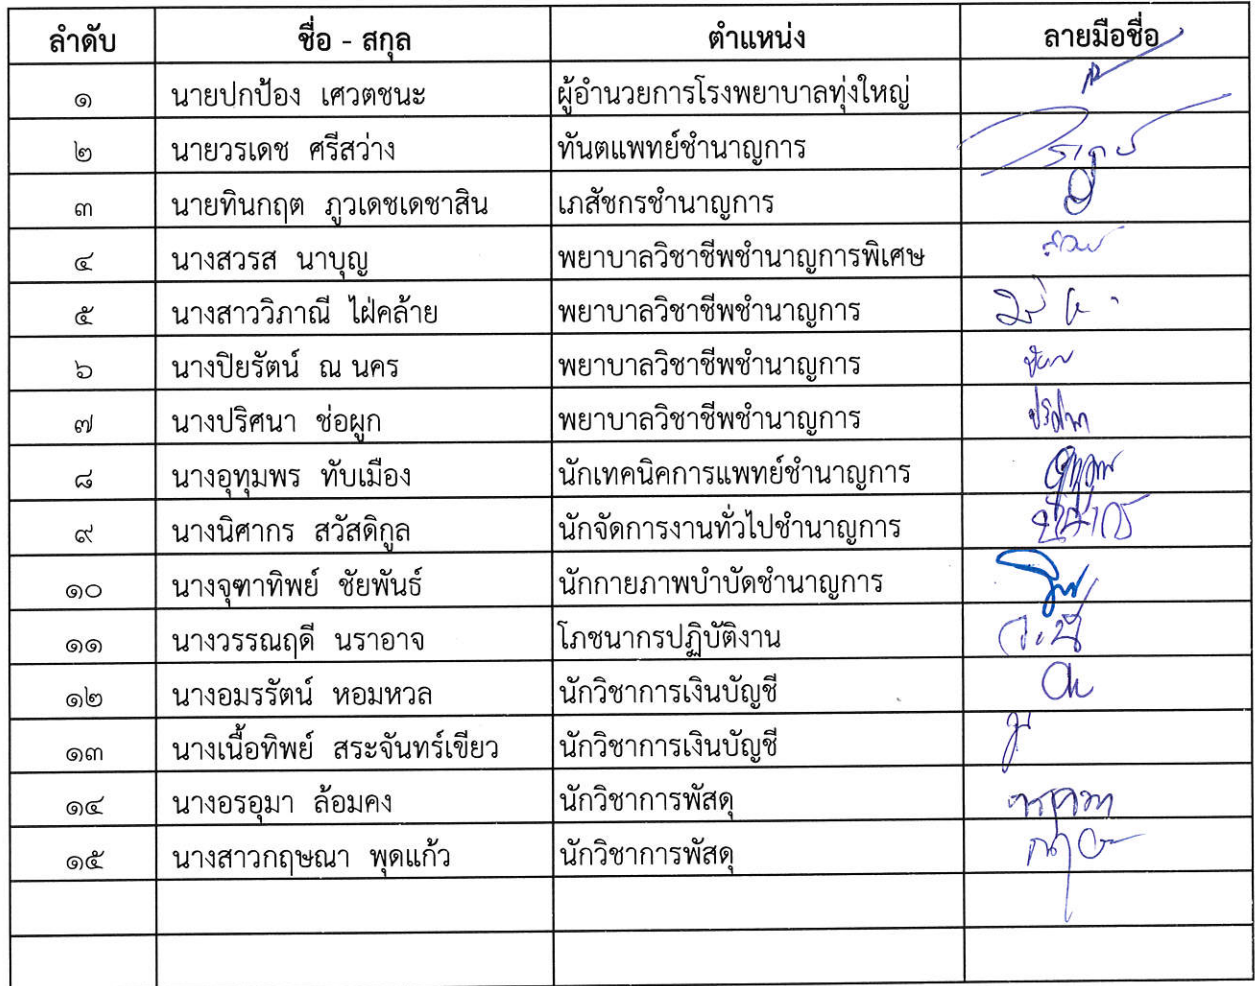 ลำดับ ชื่อ - สกุล ตำแหน่ง ลายมือชื่อ
๑ นายปกป้อง เศวตชนะ ผู้อำนวยการโรงพยาบาลทุ่งใหญ่
๒ นายวรเดช ศรีสว่าง ทันตแพทย์ชำนาญการ
๓ นายทินกฤต ภูวเดชเดชาสิน เภสัชกรชำนาญการ
๔ นางสวรส นาบุญ พยาบาลวิชาชีพชำนาญการพิเศษ
๕ นางสาววิภาณี ไฝ่คล้าย พยาบาลวิชาชีพชำนาญการ
๖ นางปิยรัตน์ ณ นคร พยาบาลวิชาชีพชำนาญการ
๗ นางปริศนา ช่อผูก พยาบาลวิชาชีพชำนาญการ ปริศนา
๘ นางอุทุมพร ทับเมือง นักเทคนิคการแพทย์ชำนาญการ
๙ นางนิศากร สวัสดิกูล นักจัดการงานทั่วไปชำนาญการ
๑๐ นางจุฑาทิพย์ ชัยพันธ์ นักกายภาพบำบัดชำนาญการ
๑๑ นางวรรณฤดี นราอาจ โภชนากรปฏิบัติงาน
๑๒ นางอมรรัตน์ หอมหวล นักวิชาการเงินบัญชี
๑๓ นางเนื้อทิพย์ สระจันทร์เขียว นักวิชาการเงินบัญชี
๑๔ นางอรอุมา ล้อมคง นักวิชาการพัสดุ
๑๕ นางสาวกฤษณา พุดแก้ว นักวิชาการพัสดุ